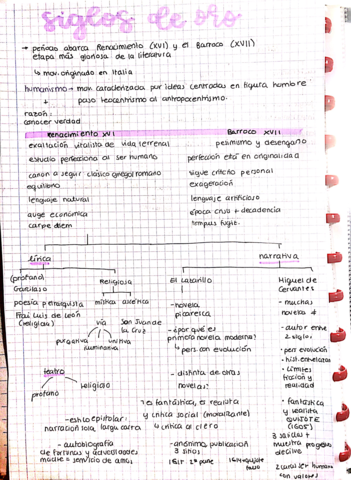 siglos de oro
→ período abarca Renacimiento (XVI) y el Barroco (XVII)
etapa más gloriosa de la literatura
↳ mov. originado en Italia
humanismo → mov. caracterizado por ideas centradas en figura hombre
+ paso teocentrismo al antropocentrismo.
razón:
conocer verdad
Renacimiento XVI Barroco XVII
exaltación vitalista de vida terrenal pesimismo y desengaño
estudio perfecciona al ser humano perfección está en originalidad
canon a seguir clásico grecorromano sigue criterio personal
equilibrio exageración
lenguaje natural lenguaje artificioso
auge económica época crisis + decadencia
carpe diem tempus fugit.
lírica narrativa
(profana) Religiosa El Lazarillo Miguel de
Garcilaso Cervantes
poesía petrarquista mística ascética -novela - muchas
Frai Luis de León picaresca novela
(religiosa) vía San Juan de - autor entre
la Cruz -¿por qué es 2 siglo.
purgativa unitiva primera novela moderna? - pers evolución
iluminativa ↳ pers con evolución
teatro - distinta de otras - límites
profano religioso novelas? ficción y
realidad
no fantástica, es realista - fantástica
-estilo epistolar: y crítica social (moralizante) y realista
narración toda larga carta ↳ crítica al clero QUIJOTE
(1605)
- autobiografía -anónimo, publicación 3 salidas +
de fortunas y adversidades 3 sitios muestra progreso
madre = servicio de amos 2ª parte declive